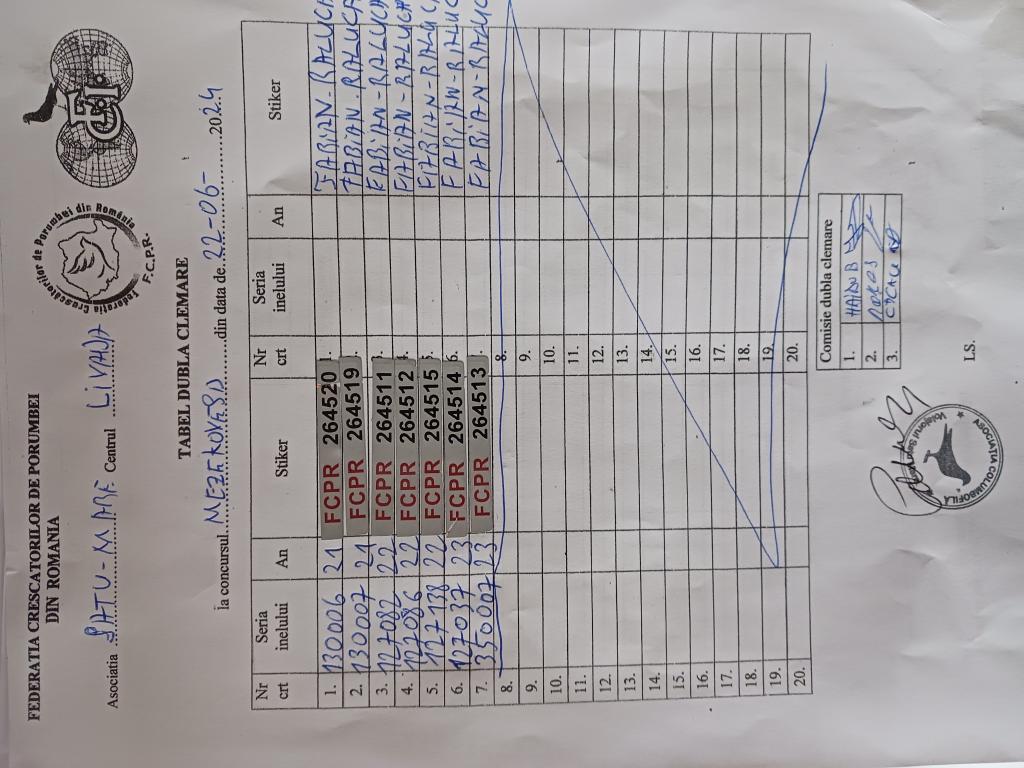 FEDERATIA CRESCATORILOR DE PORUMBEI
DIN ROMANIA
Federatia Crescatorilor de Porumbei din România
F.C.P.R.
FCI
Asociatia SATU-MARE Centrul LIVADA
TABEL DUBLA CLEMARE
la concursul MEZEKOVESD din data de 22-06- 2024
Nr crt Seria inelului An Stiker Nr crt Seria inelului An Stiker
1. 130006 21 FCPR 264520 1. FABIAN-RALUCA
2. 130007 21 FCPR 264519 FABIAN-RALUCA
3. 127082 22 FCPR 264511 3. FABIAN-RALUCA
4. 127086 22 FCPR 264512 4. FABIAN-RALUCA
5. 127138 22 FCPR 264515 5. FABIAN-RALUC
6. 127037 23 FCPR 264514 6. FABIAN-RALUC
7. 350007 23 FCPR 264513 FABIAN-RALUC
8. 8.
9. 9.
10. 10.
11. 11.
12. 12.
13. 13.
14. 14.
15. 15.
16. 16.
17. 17.
18. 18.
19. 19.
20. 20.
Comisie dubla clemare
1.
2.
3.
ASOCIATIA COLUMBOFILA
I.S.